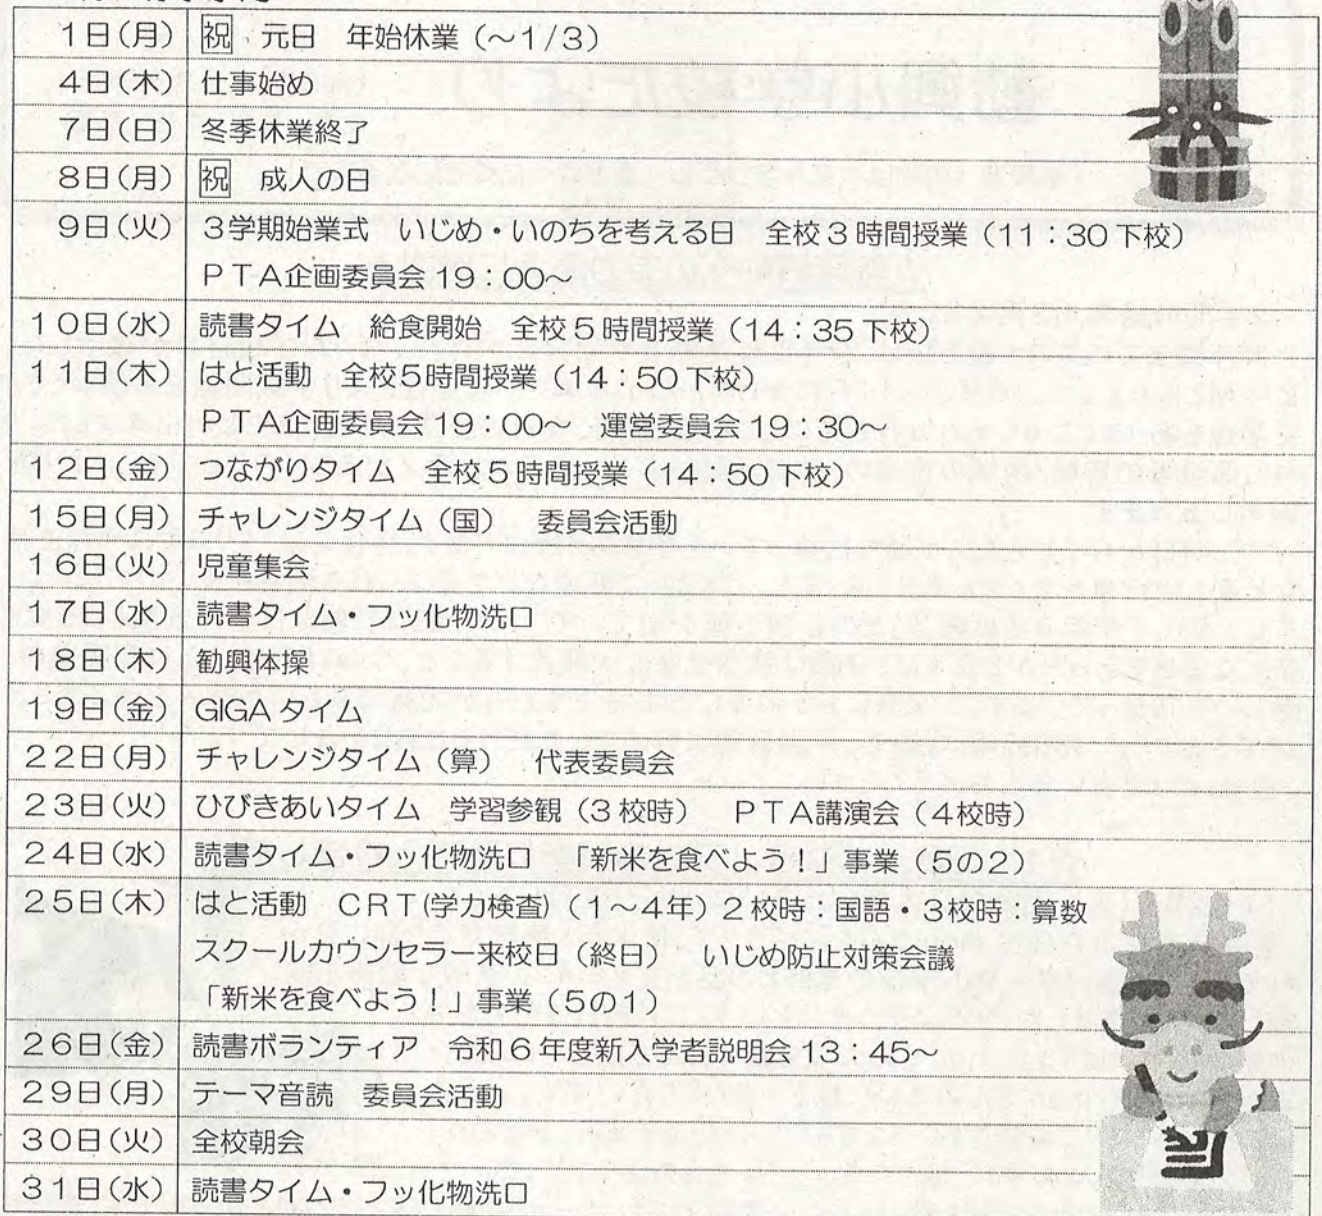 1日(月) 祝 元日 年始休業（～1/3）
4日(木) 仕事始め
7日(日) 冬季休業終了
8日(月) 祝 成人の日
9日(火) 3学期始業式 いじめ・いのちを考える日 全校3時間授業（11：30下校）
PTA企画委員会19：00～
10日(水) 読書タイム 給食開始 全校5時間授業（14：35下校）
11日(木) はと活動 全校5時間授業（14：50下校）
PTA企画委員会19：00～ 運営委員会19：30～
12日(金) つながりタイム 全校5時間授業（14：50下校）
15日(月) チャレンジタイム（国） 委員会活動
16日(火) 児童集会
17日(水) 読書タイム・フッ化物洗口
18日(木) 勧興体操
19日(金) GIGAタイム
22日(月) チャレンジタイム（算） 代表委員会
23日(火) ひびきあいタイム 学習参観（3校時） PTA講演会（4校時）
24日(水) 読書タイム・フッ化物洗口 「新米を食べよう！」事業（5の2）
25日(木) はと活動 CRT(学力検査)（1～4年）2校時：国語・3校時：算数
スクールカウンセラー来校日（終日） いじめ防止対策会議
「新米を食べよう！」事業（5の1）
26日(金) 読書ボランティア 令和6年度新入学者説明会13：45～
29日(月) テーマ音読 委員会活動
30日(火) 全校朝会
31日(水) 読書タイム・フッ化物洗口